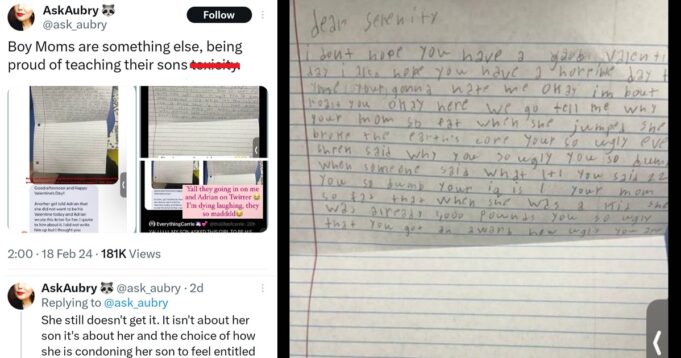 AskAubry
@ask_aubry
Follow
Boy Moms are something else, being
proud of teaching their sons toxicity.
Goodafternoon and Happy
Valentine's Day!
Another girl told Adrian that
she did not want to be his
Valentine today and Adrian
wrote this letter for her. I
to him about it. I did not
Yall they going in on me
and Adrian on Twitter
I'm dying laughing, they
so maddddd
EverythingCarrie
2:00 · 18 Feb 24 · 181K Views
AskAubry @ask_aubry · 2d
Replying to @ask_aubry
She still doesn't get it. It isn't about her
son it's about her and the choice of how
she is condoning her son to feel entitled
dear Serenity
i dont hope you have a good valenti
day i also hope you have a horrible day
your gonna hate me okay im bout
roast you okay here we go tell me why
your mom so fat when she jumped she
broke the earth's core your so ugly eve
shrek said why you so ugly you so dum
when someone said what 1+1 you said 22
you so dumb your iq is 1 your mom
so fat that when she was a kid she
was already 9000 pounds you so ugly
that you got an award how ugly you are